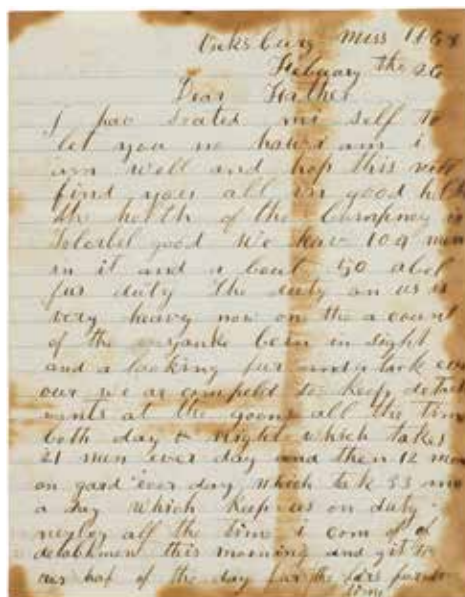 Vicksburg Miss 1863
Febuary the 26
Dear Father
I have seated mi self to
let you no how i am i
am well and hop this will
find you all in good helth
the helth of the Compney is
Tolerbel good we have 109 men
in it and a bout 50 abel
fur duty the duty on us is
very heavy now on the a count
of the yanks been in sight
and a looking fur an atack ever
our we ar compeld to keep detach
ments at the goons all the time
both day & night which takes
21 men ever day and then 12 men
on gard ever day which tak 33 men
a day which keep us on duty
all the time i com of of
detachment this morning and git to
res haf of the day fur the furst
time